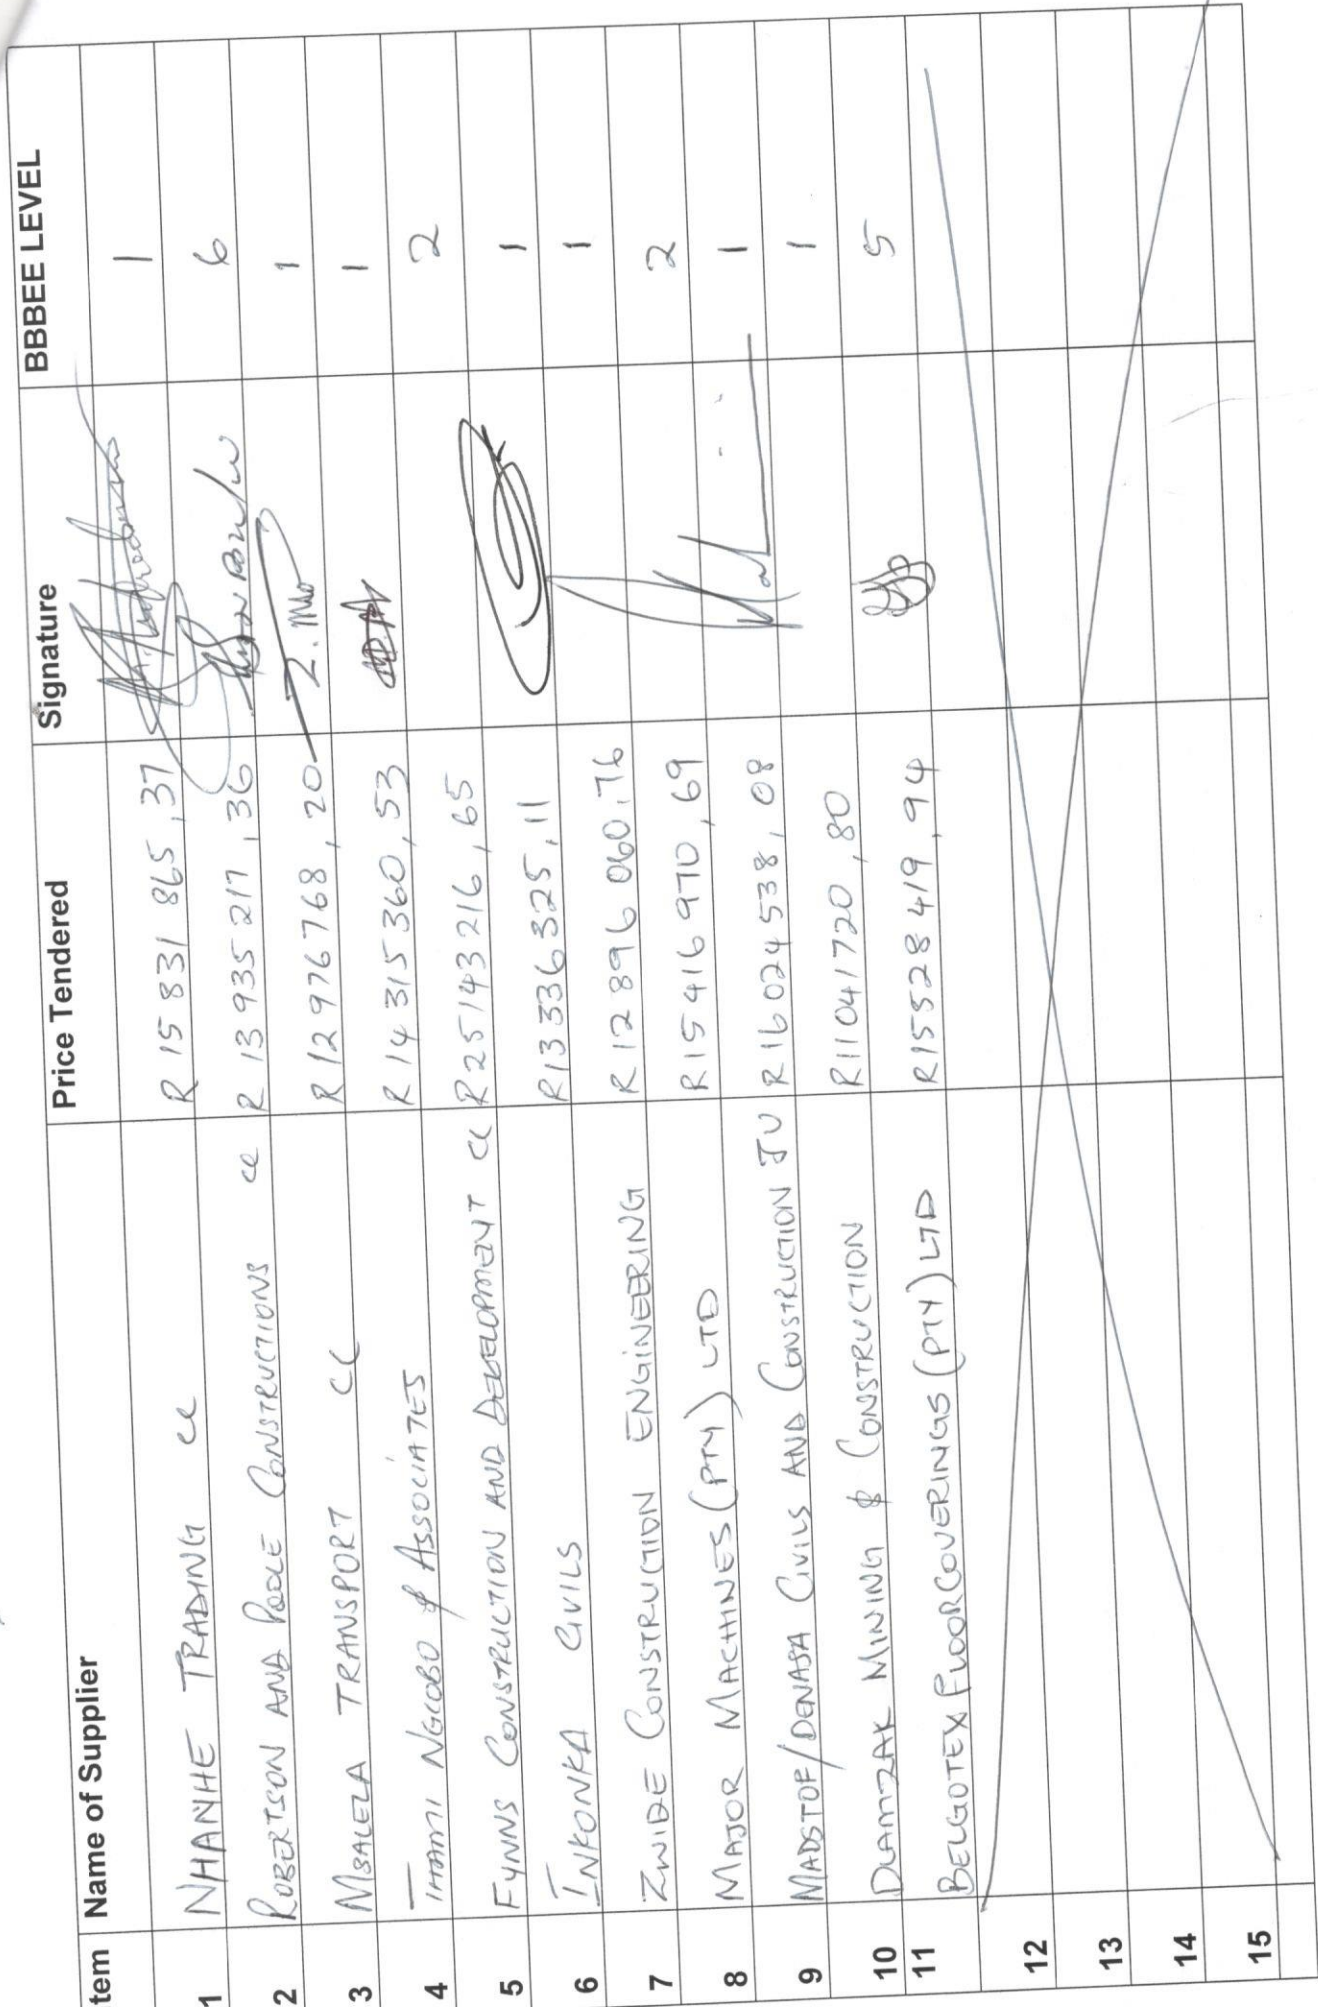 tem Name of Supplier Price Tendered Signature BBBEE LEVEL
1 NHANHE TRADING cc R 15 831 865,37 1
2 ROBERTSON AND POOLE CONSTRUCTIONS cc R 13 935 217,36 6
3 MBALELA TRANSPORT CC R 12 976 768,20 1
4 THAMI NGCOBO & ASSOCIATES R 14 315 360,53 1
5 FYNNS CONSTRUCTION AND DEVELOPMENT CC R 25 143 216,65 2
6 INKONKA CIVILS R13 336 325,11 1
7 ZWIDE CONSTRUCTION ENGINEERING R 12 896 060,76 1
8 MAJOR MACHINES (PTY) LTD R15 416 970,69 2
9 MADSTOF/DENASA CIVILS AND CONSTRUCTION JV R16 024 538,08 1
10 DLAMZAK MINING & CONSTRUCTION R11 041 720,80 1
11 BELGOTEX FLOORCOVERINGS (PTY) LTD R15 528 419,94 5
12
13
14
15